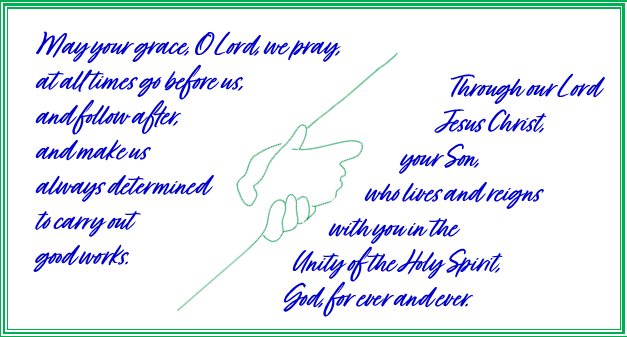 May your grace, O Lord, we pray,
at all times go before us,
and follow after,
and make us
always determined
to carry out
good works.
Through our Lord
Jesus Christ,
your Son,
who lives and reigns
with you in the
Unity of the Holy Spirit,
God, for ever and ever.